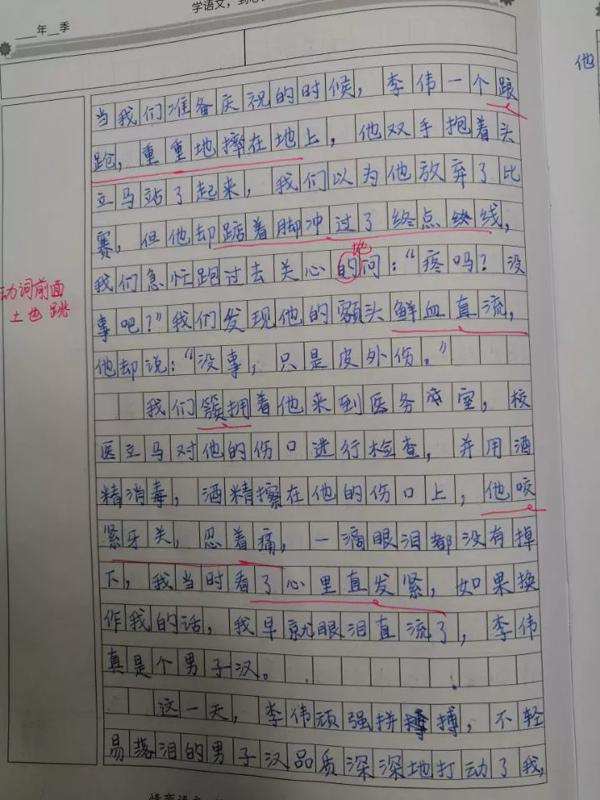 学语文，到心
年 季
他
当我们准备庆祝的时候，李伟一个踉
跑，重重地摔在地上，他双手抱着头
立马站了起来，我们以为他放弃了比
赛，但他却踮着脚冲过了终点终线，
地
我们急忙跑过去关心的问：“疼吗？没
动词前面
土也跳
事吧？”我们发现他的额头鲜血直流，
他却说：“没事，只是皮外伤。”
我们簇拥着他来到医务室，校
医立马对他的伤口进行检查，并用酒
精消毒，酒精擦在他的伤口上，他咬
紧牙关，忍着痛，一滴眼泪都没有掉
下，我当时看了心里直发紧，如果换
作我的话，我早就眼泪直流了，李伟
真是个男子汉。
这一天，李伟顽强拼搏，不轻
易落泪的男子汉品质深深地打动了我，